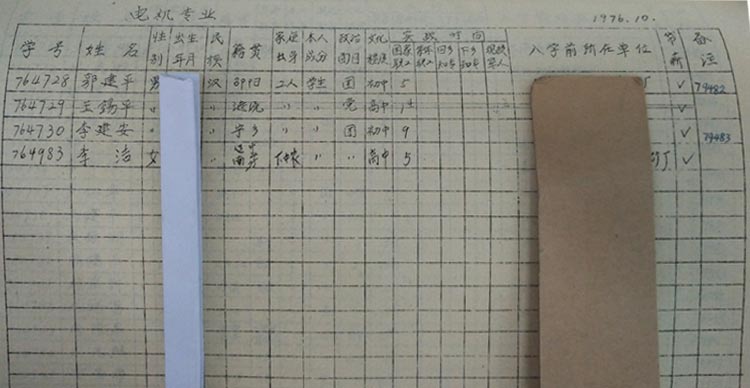 电机专业 1976.10.
学号 姓名 性别 出生年月 民族 籍贯 家庭出身 本人成分 政治面目 文化程度 实践时间 国家职入 回乡知青 下乡知青 现役军人 入学前所在单位 带薪 备注
764728 郭建平 男 汉 邵阳 工人 学生 团 初中 5 ✓ 79482
764729 王锡平 〃 〃 〃 〃 党 高中 ✓
764730 李建安 〃 〃 宁乡 〃 〃 团 初中 9 ✓ 79483
764983 李洁 女 〃 〃 〃 高中 5 ✓